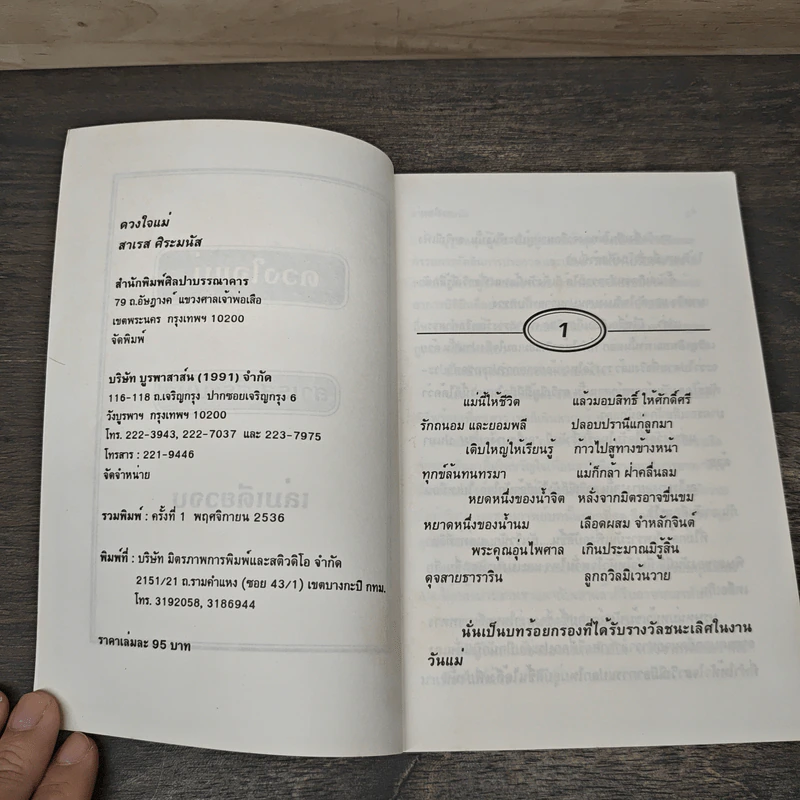 ดวงใจแม่
สาเรส ศิระมนัส
สำนักพิมพ์ศิลปาบรรณาคาร
79 ถ.อัษฎางค์ แขวงศาลเจ้าพ่อเสือ
เขตพระนคร กรุงเทพฯ 10200
จัดพิมพ์
บริษัท บูรพาสาส์น (1991) จำกัด
116-118 ถ.เจริญกรุง ปากซอยเจริญกรุง 6
วังบูรพาฯ กรุงเทพฯ 10200
โทร. 222-3943, 222-7037 และ 223-7975
โทรสาร : 221-9446
จัดจำหน่าย
รวมพิมพ์ : ครั้งที่ 1 พฤศจิกายน 2536
พิมพ์ที่ : บริษัท มิตรภาพการพิมพ์และสติวดิโอ จำกัด
2151/21 ถ.รามคำแหง (ซอย 43/1) เขตบางกะปิ กทม.
โทร. 3192058, 3186944
ราคาเล่มละ 95 บาท
1
แม่นี้ให้ชีวิต แล้วมอบสิทธิ์ ให้ศักดิ์ศรี
รักถนอม และยอมพลี ปลอบปรานีแก่ลูกมา
เติบใหญ่ให้เรียนรู้ ก้าวไปสู่ทางข้างหน้า
ทุกข์ล้นทนทรมา แม่ก็กล้า ฝ่าคลื่นลม
หยดหนึ่งของน้ำจิต หลั่งจากมิตรอาจขื่นขม
หยาดหนึ่งของน้ำนม เลือดผสม จำหลักจินต์
พระคุณอุ่นไพศาล เกินประมาณมิรู้สิ้น
ดุจสายธาราริน ลูกถวิลมิเว้นวาย
นั่นเป็นบทร้อยกรองที่ได้รับรางวัลชนะเลิศในงาน
วันแม่